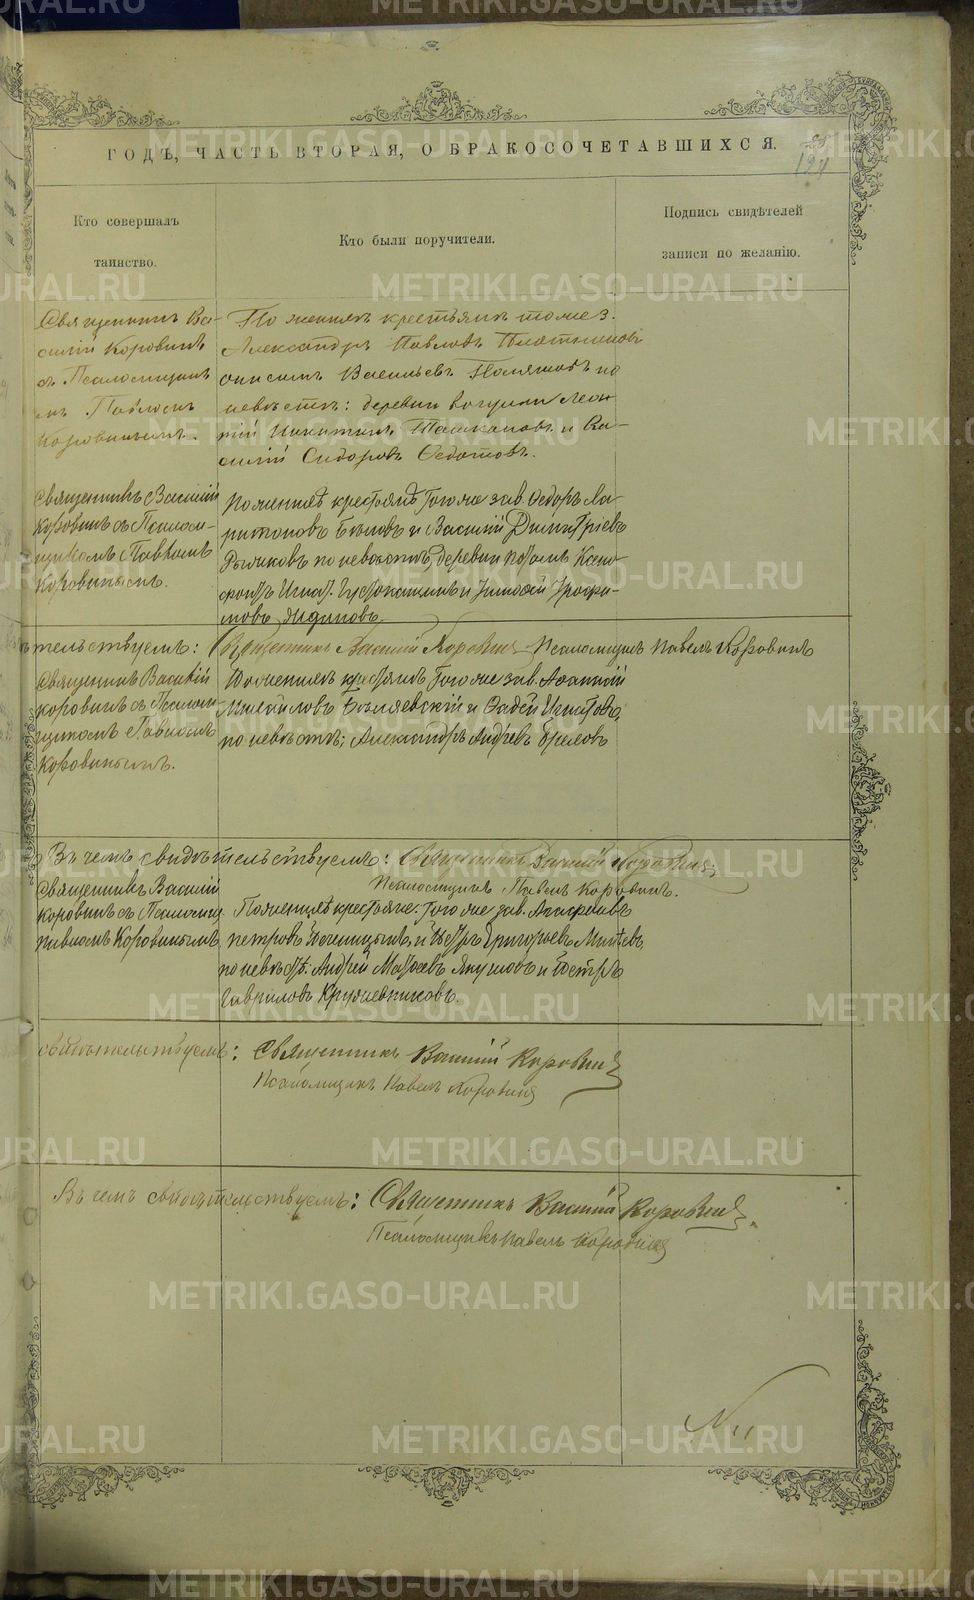 METRIKI.GASO-URAL.RU
ГОДЪ, ЧАСТЬ ВТОРАЯ, О БРАКОСОЧЕТАВШИХСЯ.
194
Кто совершалъ
таинство.
Кто были поручители.
Подпись свидѣтелей
записи по желанію.
Священникъ Ва-
силій Коровинъ
съ Псаломщик
мъ Павломъ
Коровинымъ.
По женихѣ крестьяне тогоже з.
Александръ Павловъ Плотниковъ
Васильевъ по
невѣстѣ: деревни Леон
тій Никитинъ и Ва-
силій Сидоровъ Федотовъ.
Священникъ Василій
Коровинъ съ Псалом-
щикомъ Павломъ
Коровинымъ.
По женихѣ крестьяне тогоже зав. Федоръ Ха-
ритоновъ Бѣловъ и Василій Димитріевъ
Рычковъ по невѣстѣ, деревни Ксено
фонтъ Игнат. и Тимофей Трофи-
мовъ
тельствуемъ: Священникъ Василій Коровинъ Псаломщикъ Павелъ Коровинъ
Священникъ Василій
Коровинъ съ Псалом-
щикомъ Павломъ
Коровинымъ.
По женихѣ крестьяне тогоже зав. Афанасій
Михайловъ Бѣляевскій и Фадей Игнатовъ,
по невѣстѣ; Александръ Андреевъ Орловъ
Въ чемъ свидѣтельствуемъ: Священникъ Василій Коровинъ
Псаломщикъ Павелъ Коровинъ.
Священникъ Василій
Коровинъ съ Псаломщ
Павломъ Коровинымъ
По женихѣ крестьяне: тогоже зав.
Петровъ и Петръ Григорьевъ
по невѣстѣ: Андрей Матвеевъ Якушовъ и Петръ
Гавриловъ Кружевниковъ.
свидѣтельствуемъ: Священникъ Василій Коровинъ
Псаломщикъ Павелъ Коровинъ
Въ чемъ свидѣтельствуемъ: Священникъ Василій Коровинъ
Псаломщикъ Павелъ Коровинъ